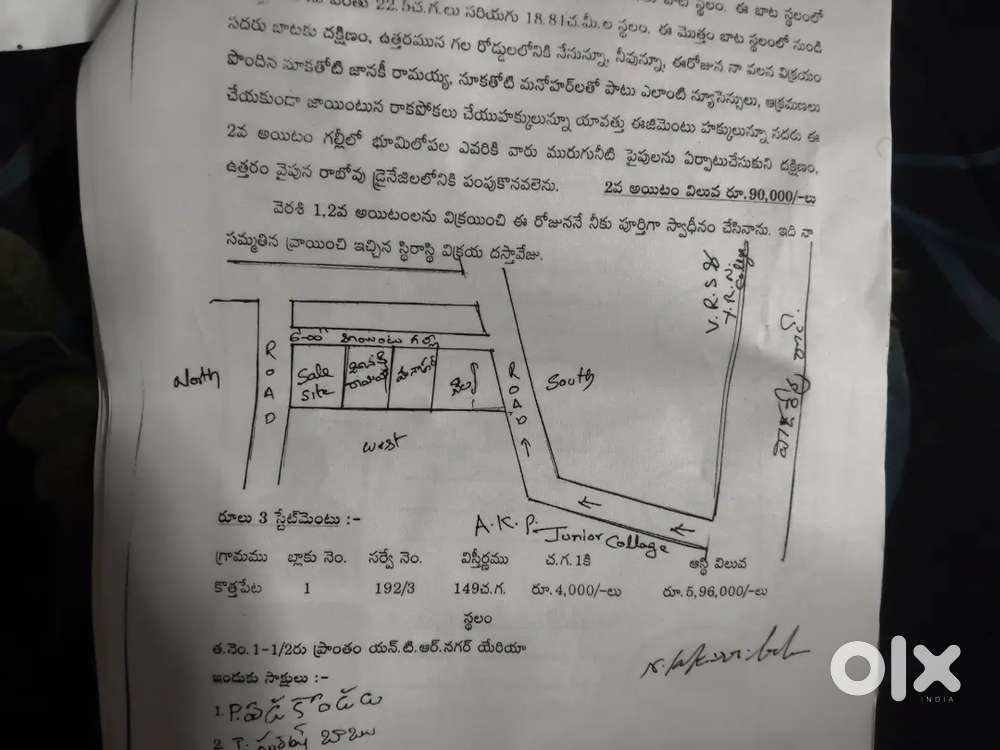 22.5చ.గ.లు సరియగు 18.81చ.మీ.ల స్థలం. ఈ మొత్తం బాట స్థలంలో నుండి
బాట స్థలం. ఈ బాట స్థలంలో
సదరు బాటకు దక్షిణం, ఉత్తరమున గల రోడ్డులలోనికి నేనున్నూ, నీవున్నూ, ఈరోజున నా వలన విక్రయం
పొందిన నూకతోటి జానకీ రామయ్య, నూకతోటి మనోహర్‌లతో పాటు ఎలాంటి న్యూసెన్సులు, ఆక్రమణలు
చేయకుండా జాయింటున రాకపోకలు చేయుహక్కులున్నూ యావత్తు ఈజిమెంటు హక్కులున్నూ సదరు ఈ
2వ అయిటం గల్లీలో భూమిలోపల ఎవరికి వారు మురుగునీటి పైపులను ఏర్పాటుచేసుకుని దక్షిణం,
ఉత్తరం వైపున రాబోవు డ్రైనేజిలలోనికి పంపుకొనవలెను. 2వ అయిటం విలువ రూ.90,000/-లు
వెరశి 1,2వ అయిటంలను విక్రయించి ఈ రోజుననే నీకు పూర్తిగా స్వాధీనం చేసినాను. ఇది నా
సమ్మతిన వ్రాయించి ఇచ్చిన స్థిరాస్థి విక్రయ దస్తావేజు.
V.R.S &
Y.R.N.
College
6-00" జాయింటు గల్లీ
North
ROAD
Sale
Site
జానకి
రామయ్య
మనోహర్
ROAD
South
West
A.K.P. Junior College
రూలు 3 స్టేట్‌మెంటు :-
గ్రామము బ్లాకు నెం. సర్వే నెం. విస్తీర్ణము చ.గ.1కి ఆస్థి విలువ
కొత్తపేట 1 192/3 149చ.గ. రూ.4,000/-లు రూ.5,96,000/-లు
స్థలం
త.నెం.1-1/2రు ప్రాంతం యన్.టి.ఆర్.నగర్ యేరియా
ఇందుకు సాక్షులు :-
1. P.
2. T. బాబు
olx
INDIA